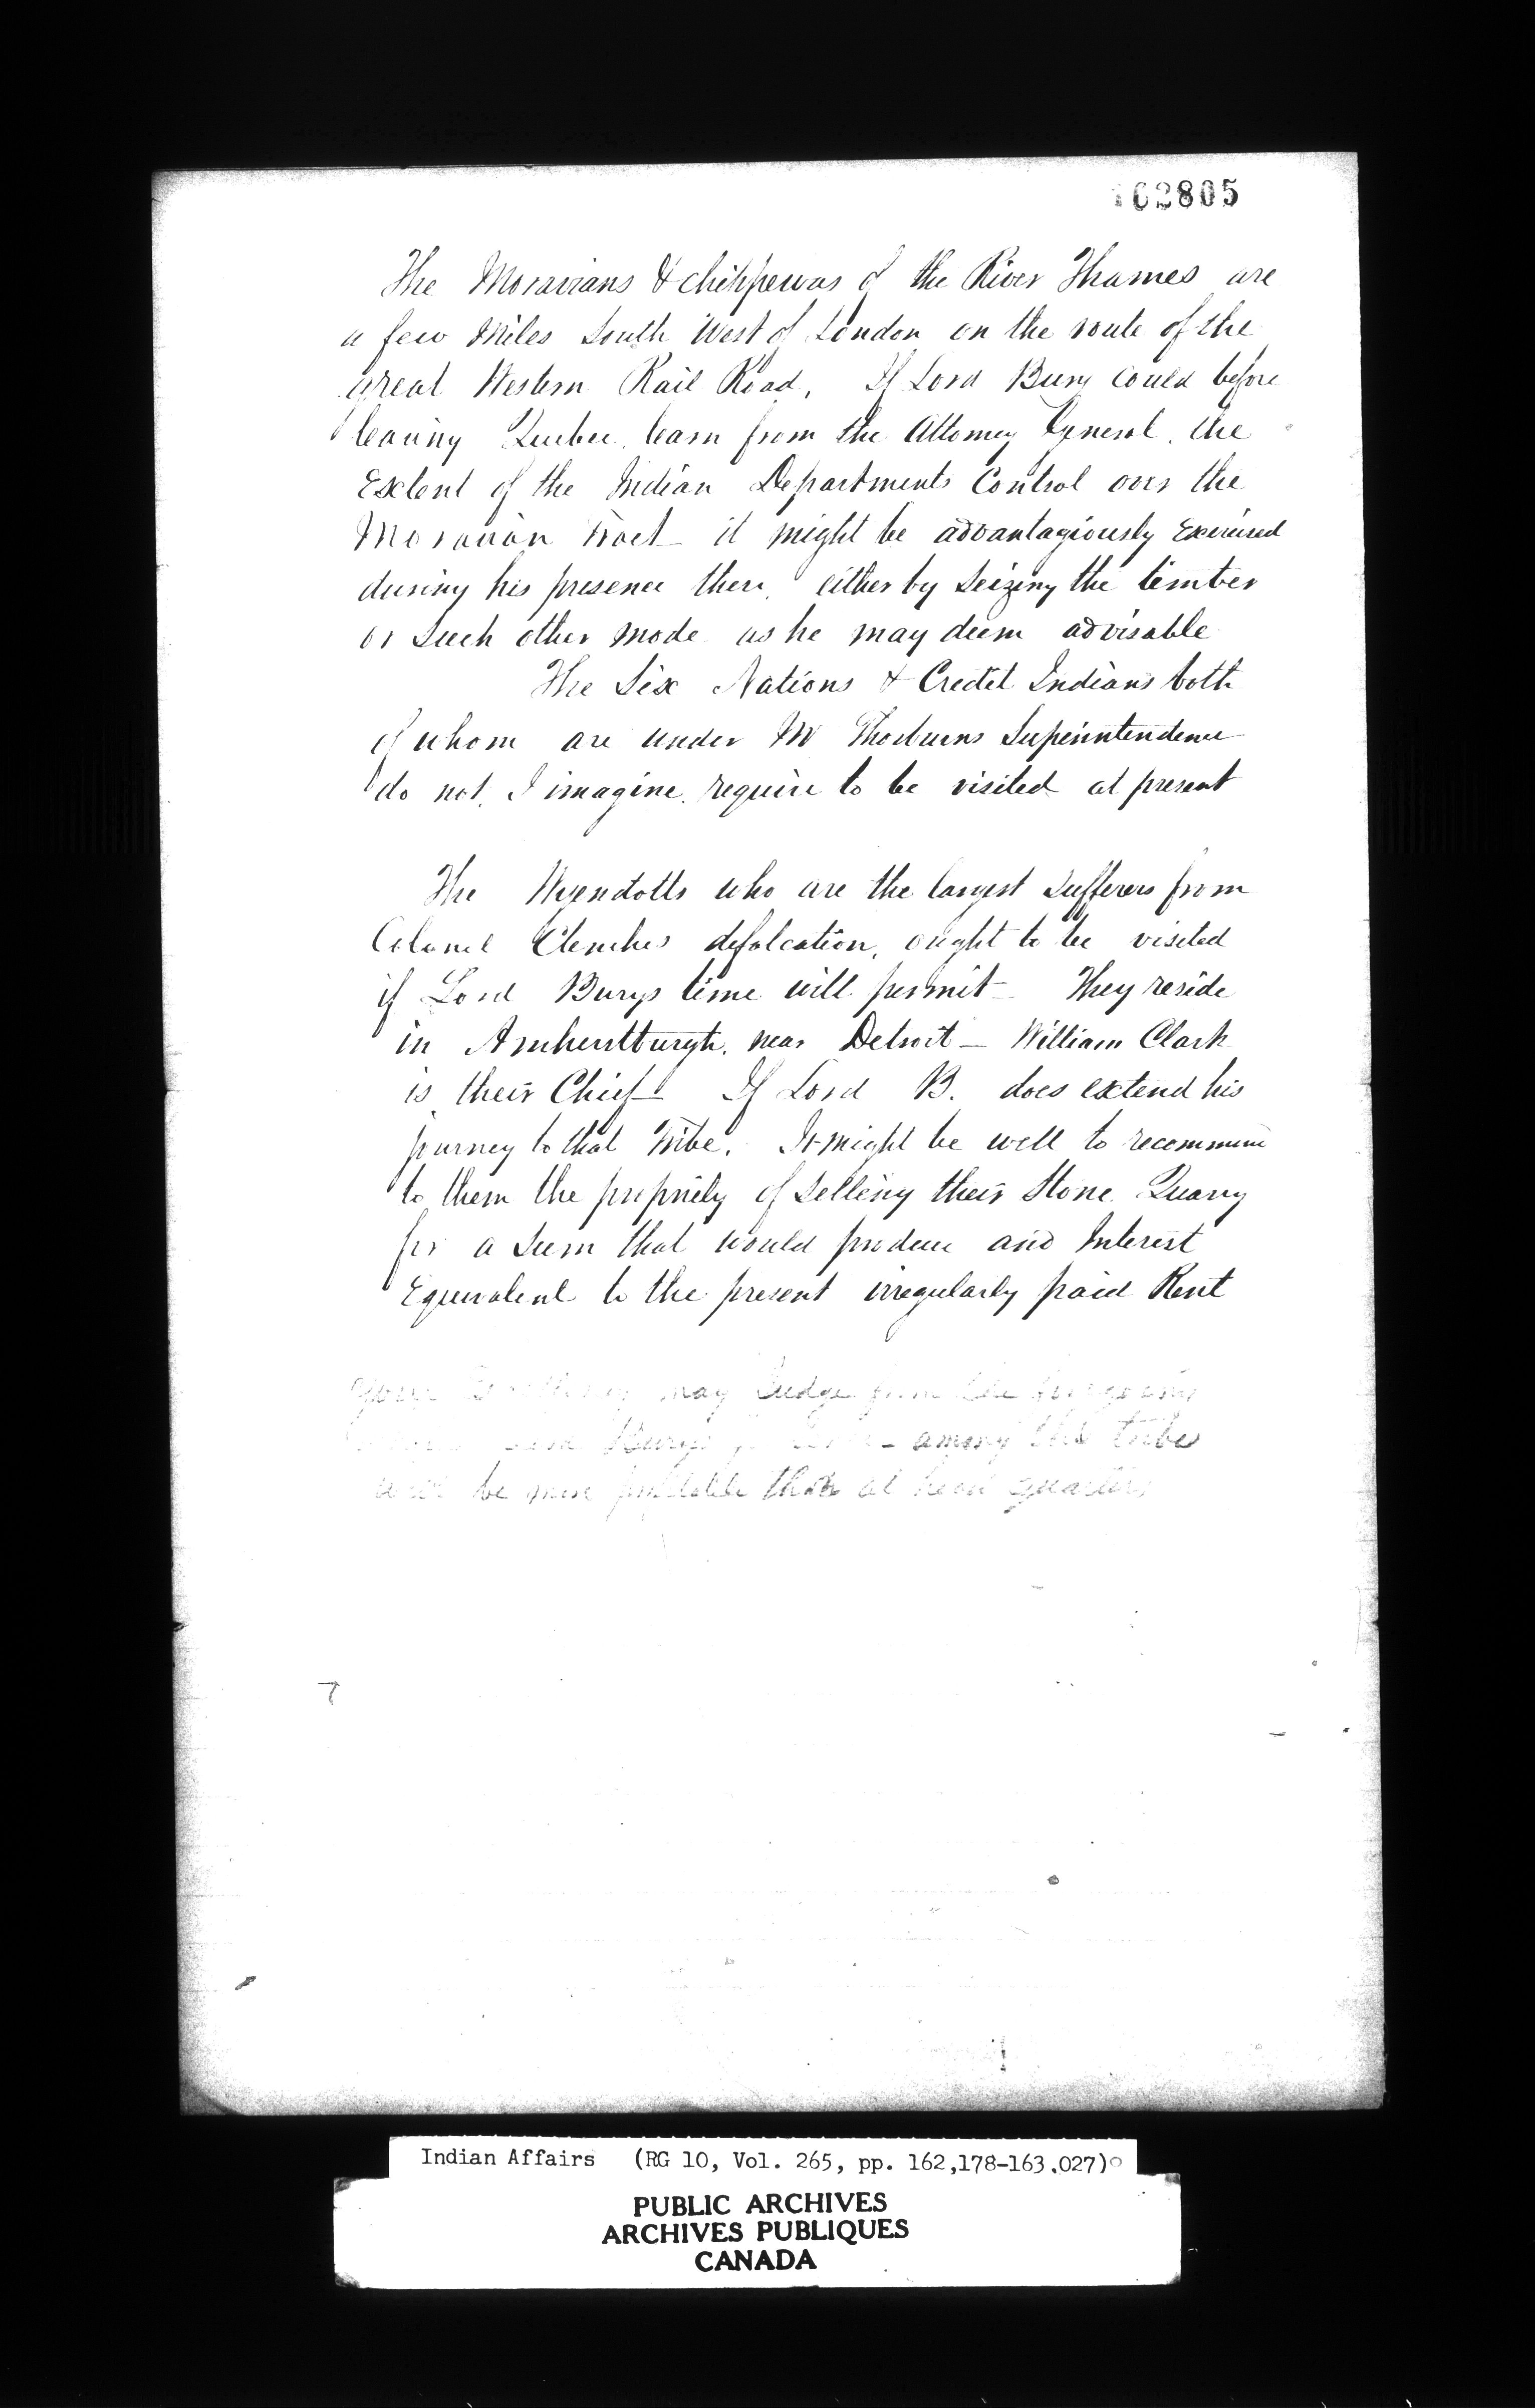 162805
The Moravians & chippewas of the River Thames are
a few Miles South West of London on the route of the
great Western Rail Road, If Lord Bury could before
leaving Quebec learn from the Attorney General, the
Extent of the Indian Departments Control over the
Moravian Tract it might be advantagiously Exercised
during his presence there, either by Seizing the timber
or Such other mode as he may deem advisable
The Six Nations & Credit Indians both
of whom are under Mr Thorburns Superintendence
do not, I imagine, require to be visited at present
The Wyendotts who are the largest Sufferers from
Colonel Clenches defalcation, ought to be visited
if Lord Burys time will permit They reside
in Amherstburgh, near Detroit — William Clark
is their Chief If Lord B. does extend his
journey to that Tribe, It might be well to recommend
to them the propriety of Selling their Stone Quarry
for a Sum that would produce and Interest
Equivalent to the present irregularly paid Rent
Your Excellency may Judge from the foregoing
Lord Burys among the tribes
will be more profitable than at head quarters
Indian Affairs (RG 10, Vol. 265, pp. 162,178-163,027)
PUBLIC ARCHIVES
ARCHIVES PUBLIQUES
CANADA